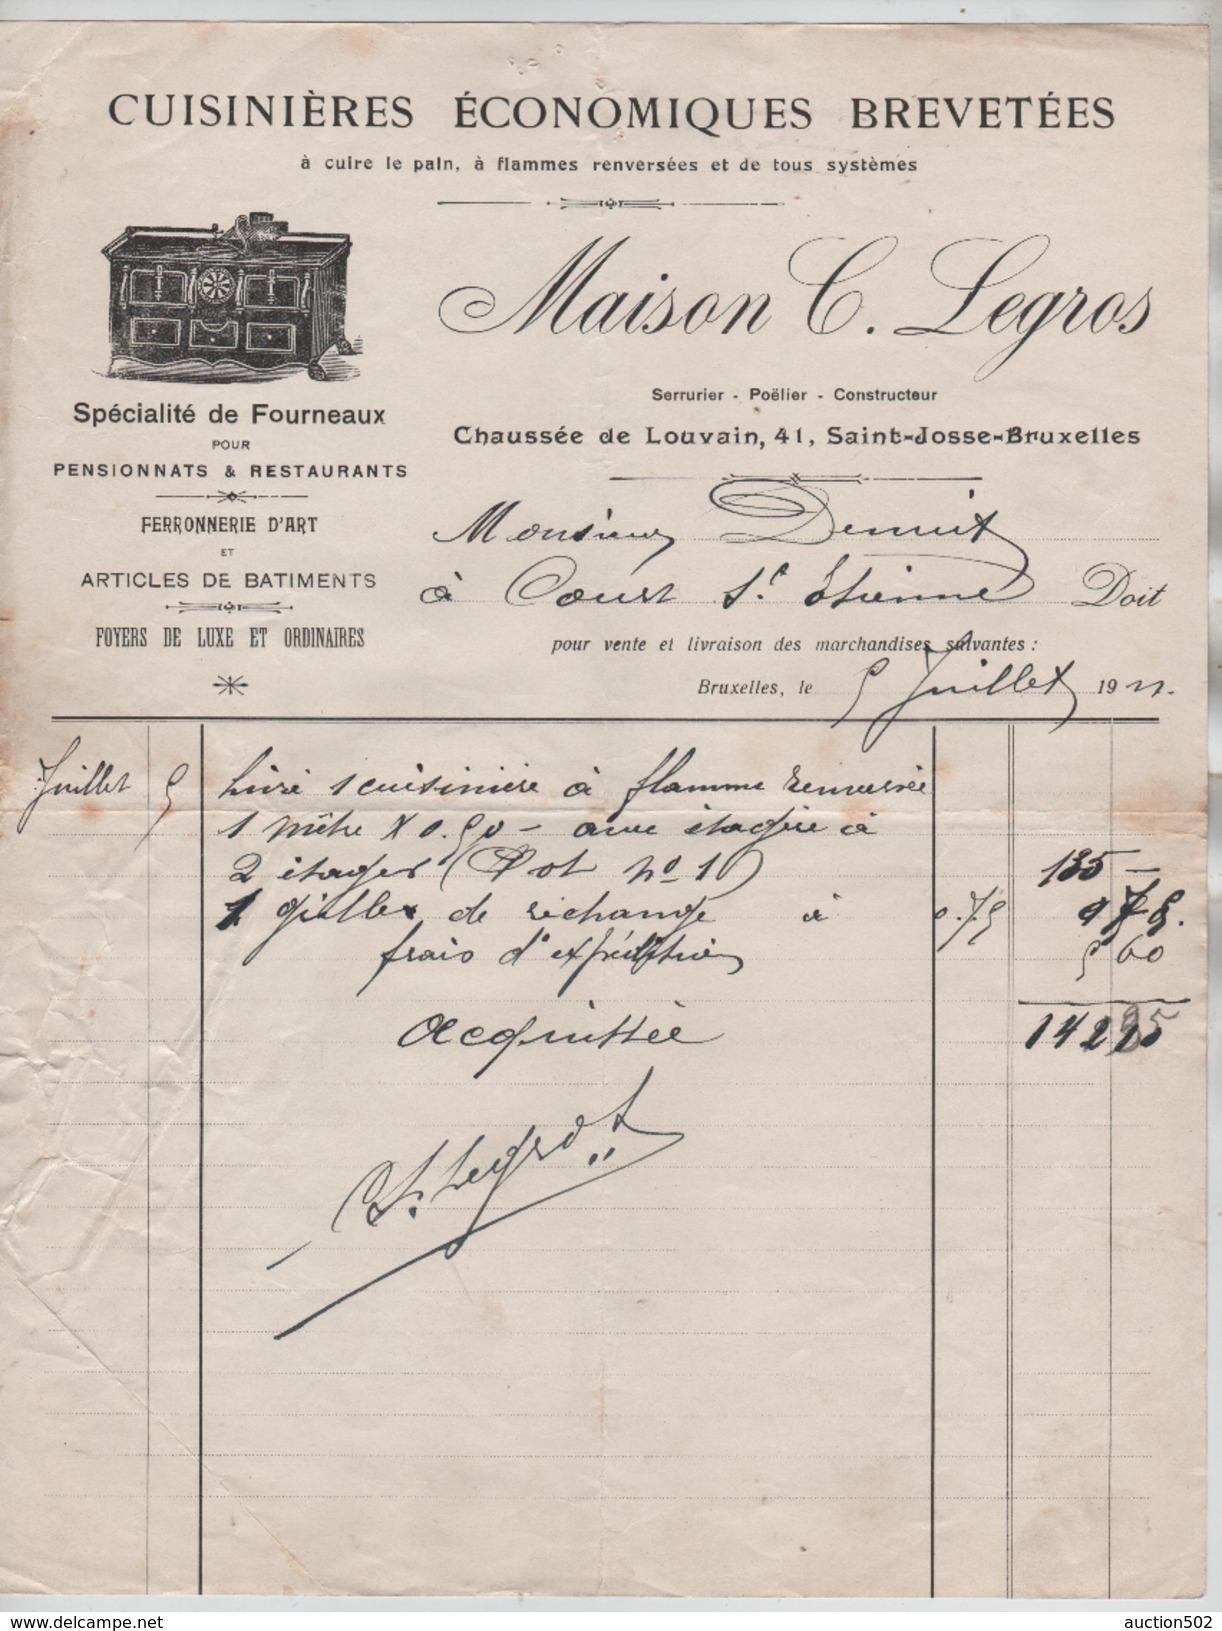 CUISINIÈRES ÉCONOMIQUES BREVETÉES
à cuire le pain, à flammes renversées et de tous systèmes
Maison C. Legros
Serrurier - Poëlier - Constructeur
Chaussée de Louvain, 41, Saint-Josse-Bruxelles
Spécialité de Fourneaux
POUR
PENSIONNATS & RESTAURANTS
FERRONNERIE D'ART
ET
ARTICLES DE BATIMENTS
FOYERS DE LUXE ET ORDINAIRES
Monsieur
à Court St Etienne Doit
pour vente et livraison des marchandises suivantes :
Bruxelles, le 5 Juillet 1911.
Juillet 5 Livré 1 cuisinière à flamme renversée
1 mètre x 0.50 - avec étagère à
2 étages (Pot no 1) 135 -
1 de rechange à 0.75 0 75.
frais d'expédition 5 60
Acquittée 142
Legros
auction502